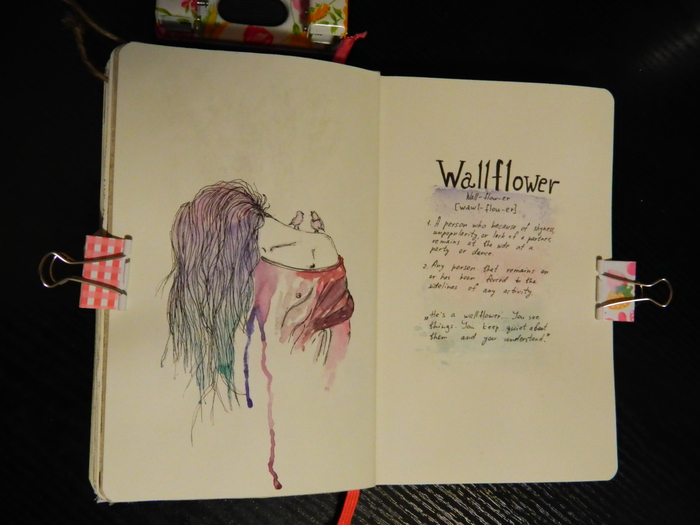 Wallflower
Wall-flow-er
[wawl-flou-er]
1. A person who because of shyness,
unpopularity, or lack of a partner,
remains at the side at a
party or dance.
2. Any person that remains on
or has been forced to the
sidelines of any activity
„He's a wallflower. You see
things. You keep quiet about
them and you understand."